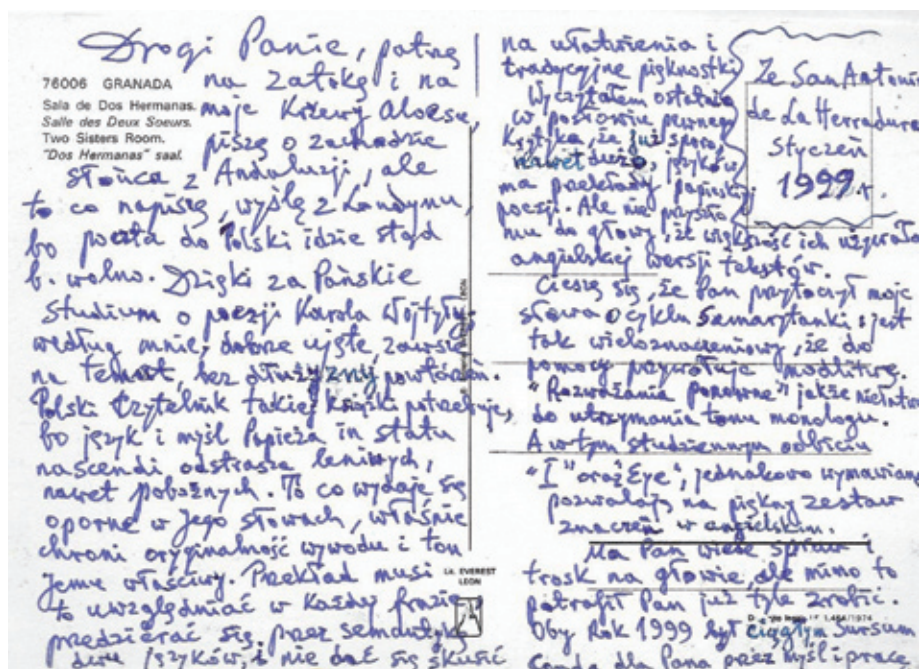 Drogi Panie, patrzę
na zatokę i na
moje krzewy aloesu,
piszę o zachodzie
słońca z Andaluzji, ale
to co napiszę, wyślę z Londynu,
bo poczta do Polski idzie stąd
b. wolno. Dzięki za Pańskie
studium o poezji Karola Wojtyły
według mnie, dobrze ujęte, zawsze
na temat, bez dłużyzny powtórzeń.
Polski Czytelnik takiej książki potrzebuje,
bo język i myśl Papieża in statu
nascendi odstrasza leniwych,
nawet pobożnych. To co wydaje się
oporne w Jego słowach, właśnie
chroni oryginalność wywodu i ton
Jemu właściwy. Przekład musi
to uwzględniać w każdej frazie
przedzierać się przez semantykę
dwu języków, i nie dać się skusić
76006 GRANADA
Sala de Dos Hermanas.
Salle des Deux Soeurs.
Two Sisters Room.
"Dos Hermanas" saal.
Lit. EVEREST
LEON
na ułatwienia i
tradycyjne pięknostki.
Wyczytałem ostatnio
w posłowiu pewnego
Krytyka, że już sporo,
nawet dużo, języków
ma przekłady papieskiej
poezji. Ale nie przyszło
mu do głowy, że większość ich używała
angielskiej wersji tekstów.
Cieszę się, że Pan przytoczył moje
słowa o cyklu Samarytanki: jest
tak wieloznaczeniowy, że do
pomocy przywołuje modlitwę.
"Rozważania ponowne" jakże
do utrzymania tonu monologu.
A w tym studziennym odbiciu
"I" oraz "Eye", jednakowo wymawiane
pozwalają na piękny zestaw
znaczeń w angielskim.
Ma Pan wiele spraw i
trosk na głowie, ale mimo to
potrafił Pan już tyle zrobić.
Oby Rok 1999 był ciągłym Sursum
Corda dla Pana przez myśl i pracę
Ze San Antonio
de La Herradura
Styczeń
1999 r.